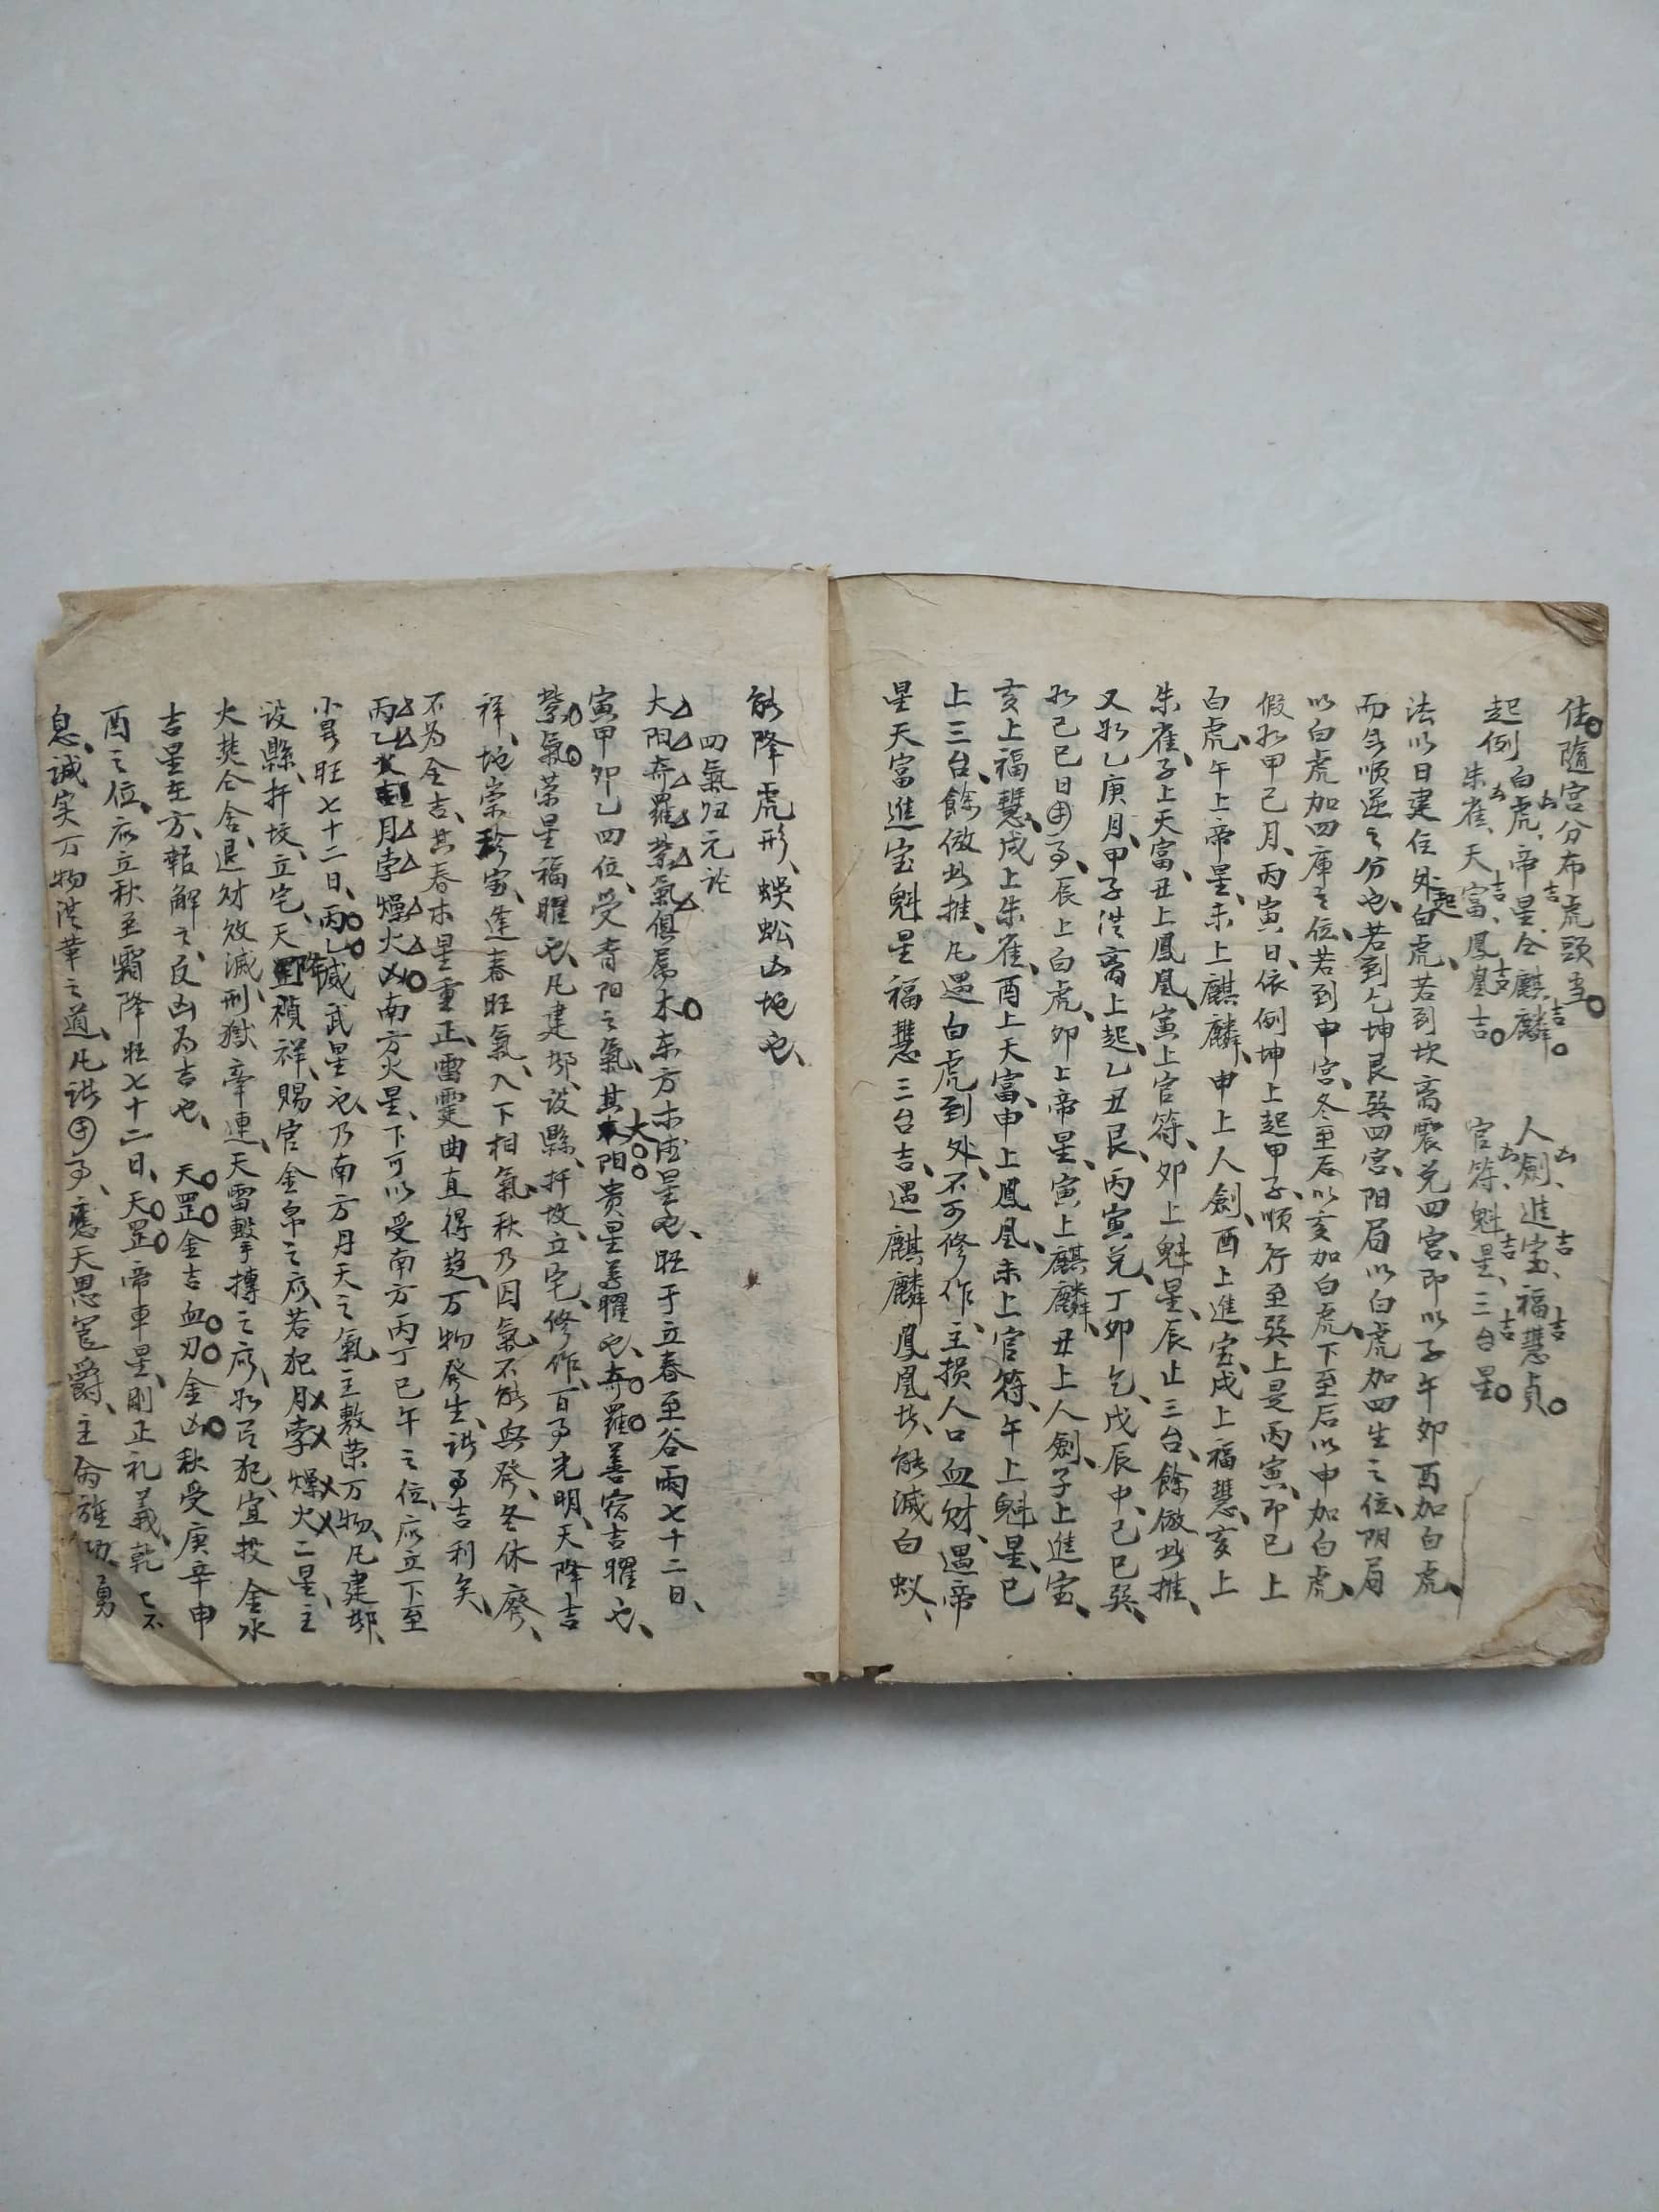 住隨宮分布虎頭專
起例 白虎、帝星全麒麟 人劍、進宝、福慧貞
朱雀、天富、鳳凰吉 官符、魁星、三台星
法以日建住外起白虎、若到坎离震兑四宮、即以子午卯酉加白虎、
而无順逆之分也、若到乞坤艮巽四宮、阳局以白虎加四生之位、阴局
以白虎加四庫之位、若到中宮、冬至后以亥加白虎、下至后以申加白虎、
假如甲己月、丙寅日、依例坤上起甲子、順行至巽上是丙寅、即巳上
白虎、午上帝星、未上麒麟、申上人劍、酉上進宝、戌上福慧、亥上
朱雀、子上天富、丑上鳳凰、寅上官符、卯上魁星、辰止三台、餘倣此推、
又如乙庚月、甲子法离上起、乙丑艮、丙寅兑、丁卯乞、戊辰中、己巳巽、
如己巳日用事、辰上白虎、卯上帝星、寅上麒麟、丑上人劍、子上進宝、
亥上福慧、戌上朱雀、酉上天富、申上鳳凰、未上官符、午上魁星、巳
上三台、餘倣此推、凡遇白虎到外、不可修作、主損人口血财、遇帝
星天富進宝魁星福慧三台吉、遇麒麟鳳凰状、能滅白蚁、
能降虎形、蜈蚣山地也、
四氣归元论
太阳奇羅紫氣俱属木、东方木德星也、旺于立春至谷雨七十二日、
寅甲卯乙四位、受青阳之氣、其太阳贵星善曜也、奇羅善宿吉曜也、
紫氣荣星福曜也、凡建邦、設縣、扦坟、立宅、修作、百事光明、天降吉
祥、地崇珍宝、逢春旺氣、入下相氣、秋乃囚氣、不能與發、冬休廢、
不为全吉、其春木星重正、雷霆曲直得莚、万物發生、诸事吉利矣、
丙乙火月孛燥火凶南方火星、下可以受南方丙丁巳午之位、应立下至
小暑旺七十二日、丙乙陰武星也、乃南方丹天之氣、主敷荣万物、凡建邦、
设縣、扦坟、立宅、天降禎祥、賜官金帛之应、若犯月孛燥火二星、主
火焚仓舍、退财败滅、刑獄牵連、天雷擊搏之应、如忌犯、宜投金水
吉星在方、報解之、反凶为吉也、 天罡金吉血刃金凶秋受庚辛申
酉之位、应立秋至霜降旺七十二日、天罡帝車星、剛正礼義、乾乾不
息、诚实万物洪華之道、凡诸用事、應天恩宦爵、主崙旌功勇